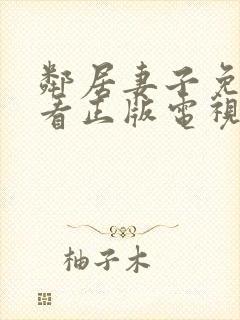 鄰居妻子免
看正版電視
柚子木